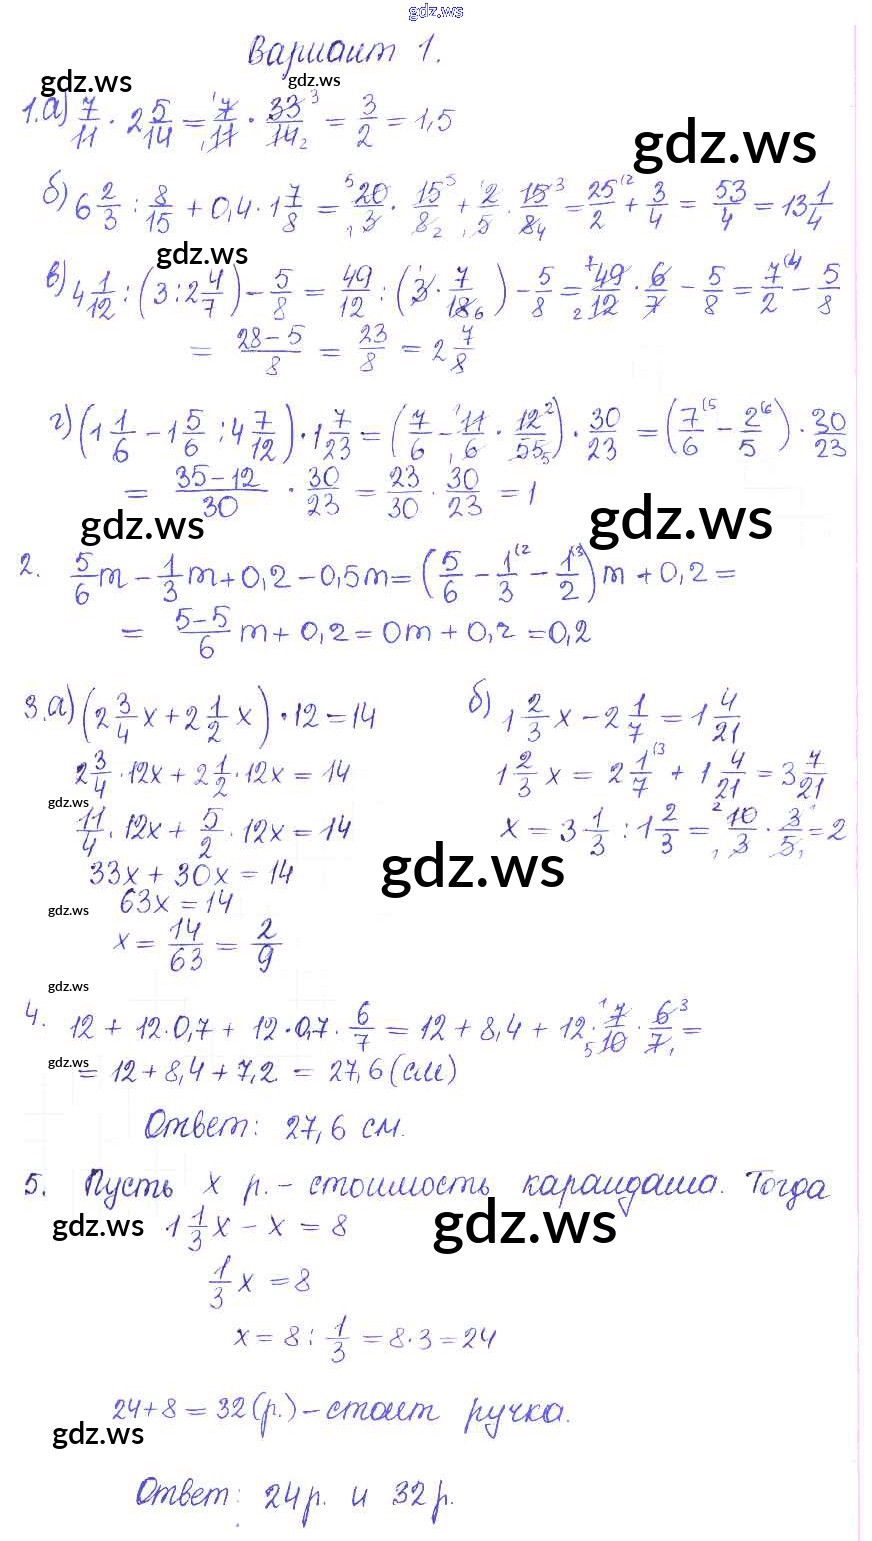 gdz.ws
Вариант 1.
gdz.ws gdz.ws
1.а) 7/11 · 2 5/14 = 7/11 · 33/14 = 3/2 = 1,5
gdz.ws
б) 6 2/3 : 8/15 + 0,4 · 1 7/8 = 20/3 · 15/8 + 2/5 · 15/8 = 25/2 + 3/4 = 53/4 = 13 1/4
gdz.ws
в) 4 1/12 : (3 : 2 4/7) - 5/8 = 49/12 : (3 · 7/18) - 5/8 = 49/12 · 6/7 - 5/8 = 7/2 - 5/8
= (28-5)/8 = 23/8 = 2 7/8
г) (1 1/6 - 1 5/6 : 4 7/12) · 1 7/23 = (7/6 - 11/6 · 12/55) · 30/23 = (7/6 - 2/5) · 30/23
= (35-12)/30 · 30/23 = 23/30 · 30/23 = 1
gdz.ws gdz.ws
2. 5/6 m - 1/3 m + 0,2 - 0,5m = (5/6 - 1/3 - 1/2) m + 0,2 =
= (5-5)/6 m + 0,2 = 0m + 0,2 = 0,2
3.а) (2 3/4 x + 2 1/2 x) · 12 = 14
2 3/4 · 12x + 2 1/2 · 12x = 14
gdz.ws
11/4 · 12x + 5/2 · 12x = 14
33x + 30x = 14
63x = 14
gdz.ws
x = 14/63 = 2/9
б) 1 2/3 x - 2 1/7 = 1 4/21
1 2/3 x = 2 1/7 + 1 4/21 = 3 7/21
x = 3 1/3 : 1 2/3 = 10/3 · 3/5 = 2
gdz.ws
gdz.ws
4. 12 + 12 · 0,7 + 12 · 0,7 · 6/7 = 12 + 8,4 + 12 · 7/10 · 6/7 =
gdz.ws
= 12 + 8,4 + 7,2 = 27,6 (см)
Ответ: 27,6 см.
5. Пусть x р. - стоимость карандаша. Тогда
gdz.ws gdz.ws
1 1/3 x - x = 8
1/3 x = 8
x = 8 : 1/3 = 8 · 3 = 24
24 + 8 = 32 (р.) - стоит ручка.
gdz.ws
Ответ: 24 р. и 32 р.